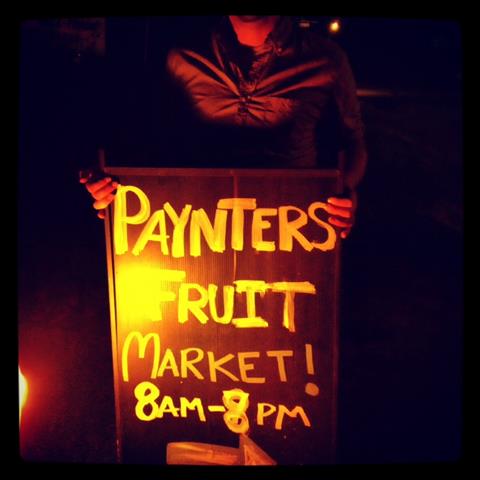 PAYNTERS
FRUIT
MARKET!
8AM-8PM